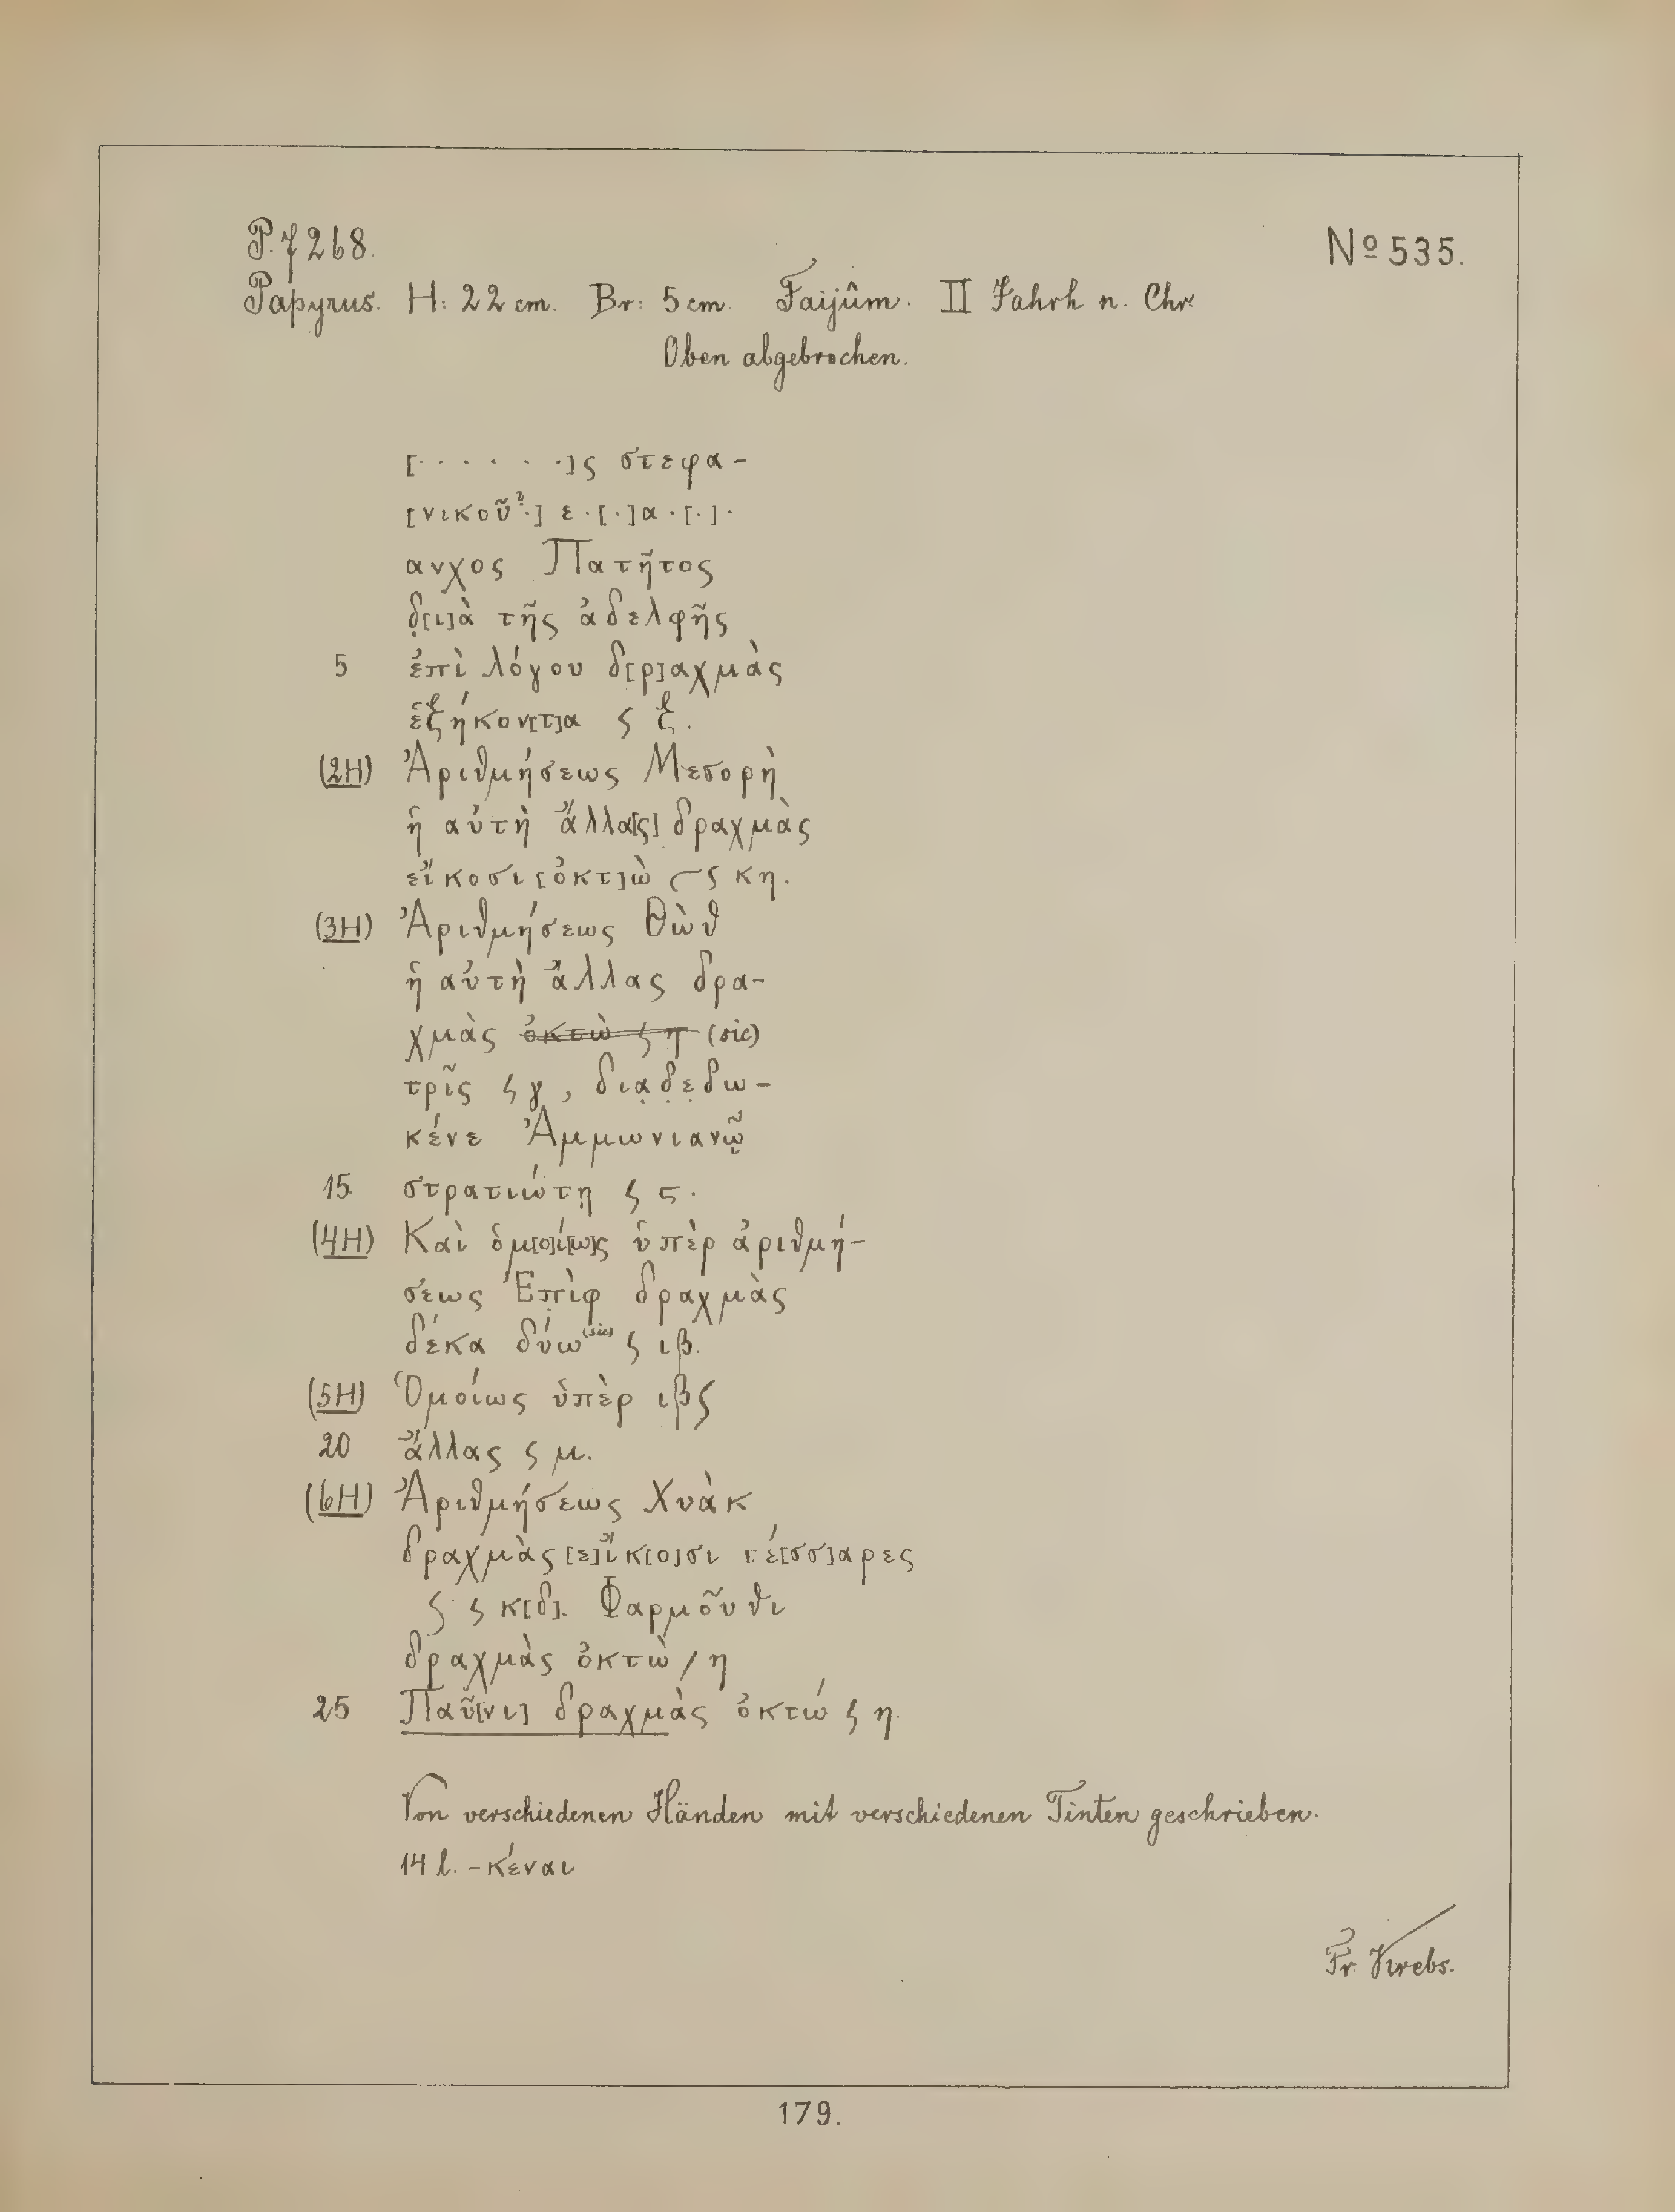 P. 7268.
No 535.
Papyrus. H: 22 cm. Br: 5 cm. Faijûm. II Jahrh n. Chr.
Oben abgebrochen.
[· · · · · ·]ς στεφα-
[νικοῦ?·] ε·[·]α·[·]·
ανχος Πατῆτος
δ̣[ι]ὰ τῆς ἀδελφῆς
5 ἐπὶ λόγου δ[ρ]αχμὰς
ἑξήκον[τ]α ϛ ξ.
(2H) Ἀριθμήσεως Μεσορὴ
ἡ αὐτὴ ἄλλα[ς] δραχμὰς
εἴκοσι [ὀκτ]ὼ ϛ κη.
(3H) Ἀριθμήσεως Θὼθ
ἡ αὐτὴ ἄλλας δρα-
χμὰς ὀκτὼ ϛ η (sic)
τρῖς ϛ γ, δια̣δ̣ε̣δω-
κένε Ἀμμωνιανῷ
15. στρατιώτῃ ϛ ϛ.
(4H) Καὶ ὁμ[ο]ί[ω]ς ὑπὲρ ἀριθμή-
σεως Ἐπ̣ὶφ δραχμὰς
δέκα δύω (sic) ϛ ιβ.
(5H) Ὁμοίως ὑπὲρ ιβϛ
20 ἄλλας ϛ μ.
(6H) Ἀριθμήσεως Χυὰκ
δραχμὰς [ε]ἴκ[ο]σι τέ[σσ]αρες
ϛ ϛ κ[δ]. Φαρμοῦθι
δραχμὰς ὀκτὼ / η
25 Παῦ[νι] δραχμὰς ὀκτώ ϛ η.
Von verschiedenen Händen mit verschiedenen Tinten geschrieben.
14 l. -κέναι
Fr. Krebs.
179.